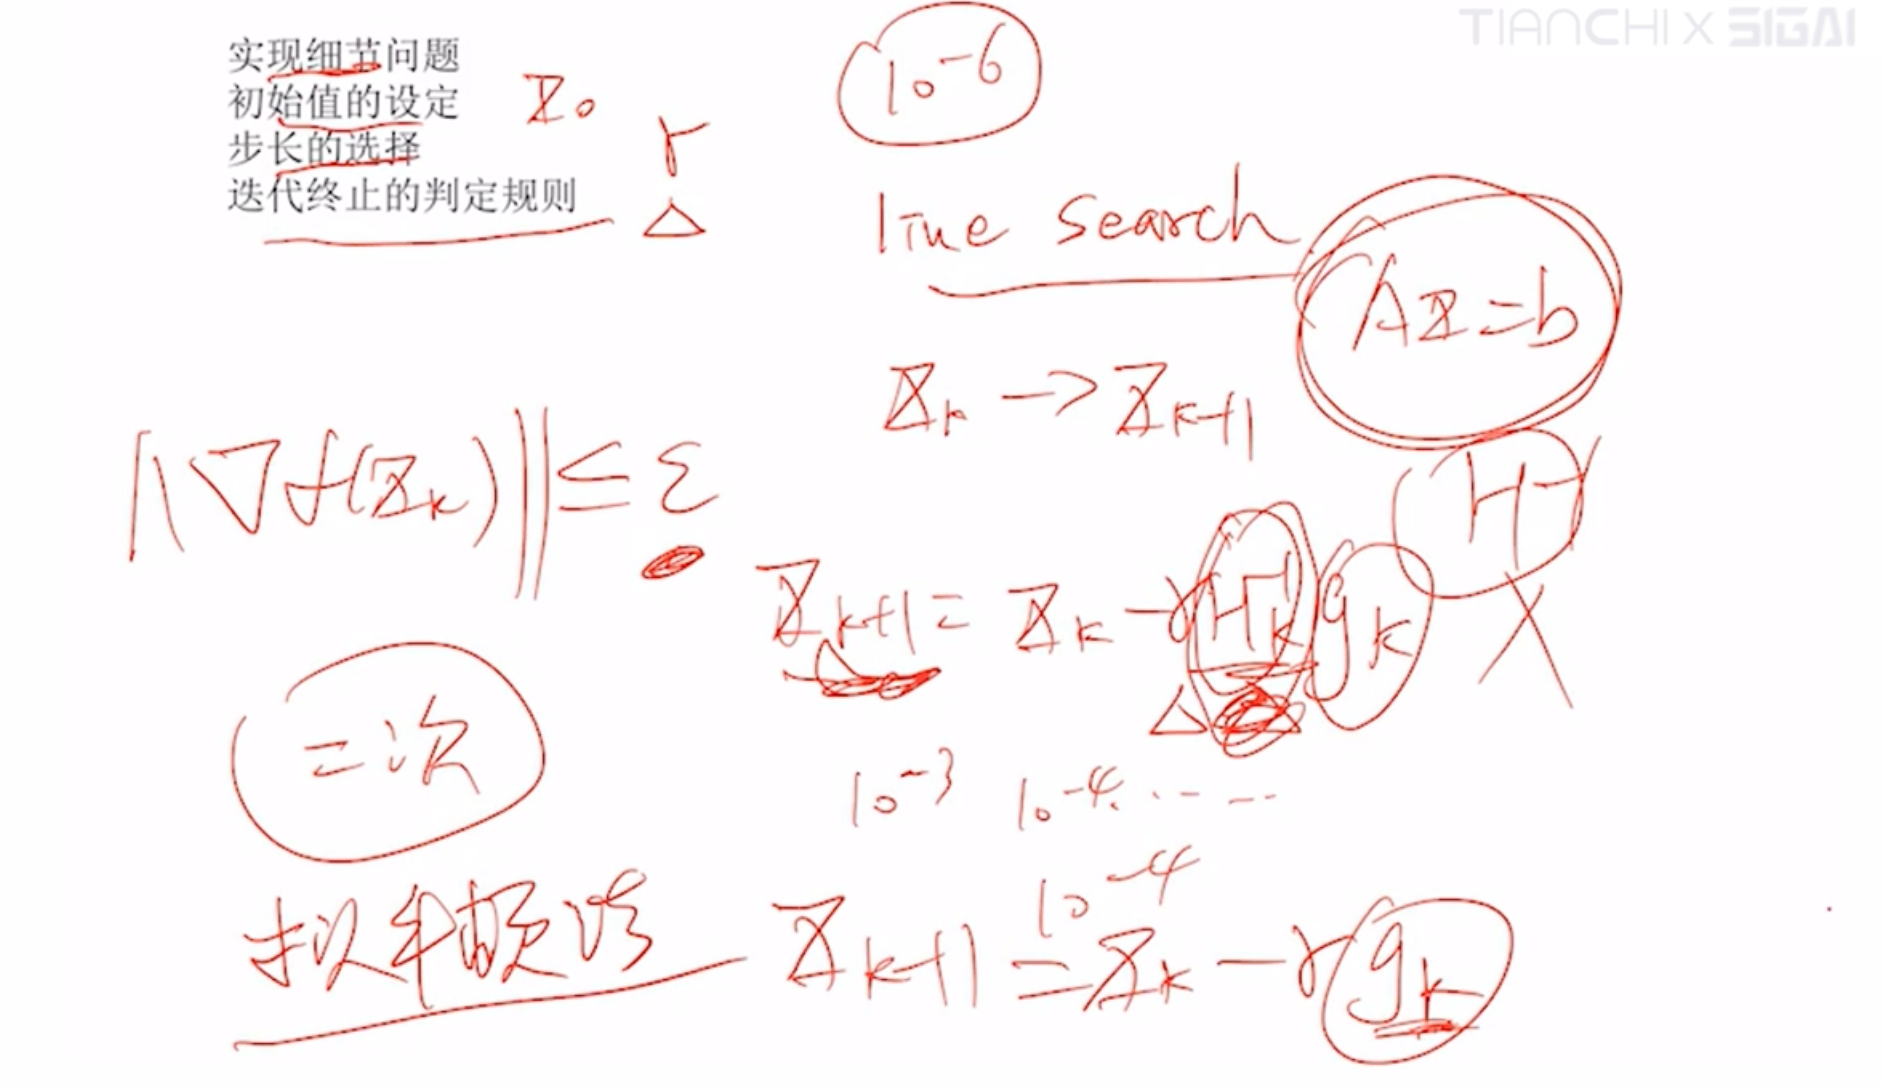 TIANCHI X SIGAI
实现细节问题
初始值的设定 X₀
步长的选择 γ
迭代终止的判定规则
10⁻⁶
line search
AX=b
Xₖ → Xₖ₊₁
||∇f(Xₖ)|| ≤ ε
H⁻¹
Xₖ₊₁ = Xₖ - γHₖ⁻¹gₖ
二次
10⁻³ 10⁻⁴ ......
10⁻⁴
拟牛顿法
Xₖ₊₁ = Xₖ - γgₖ